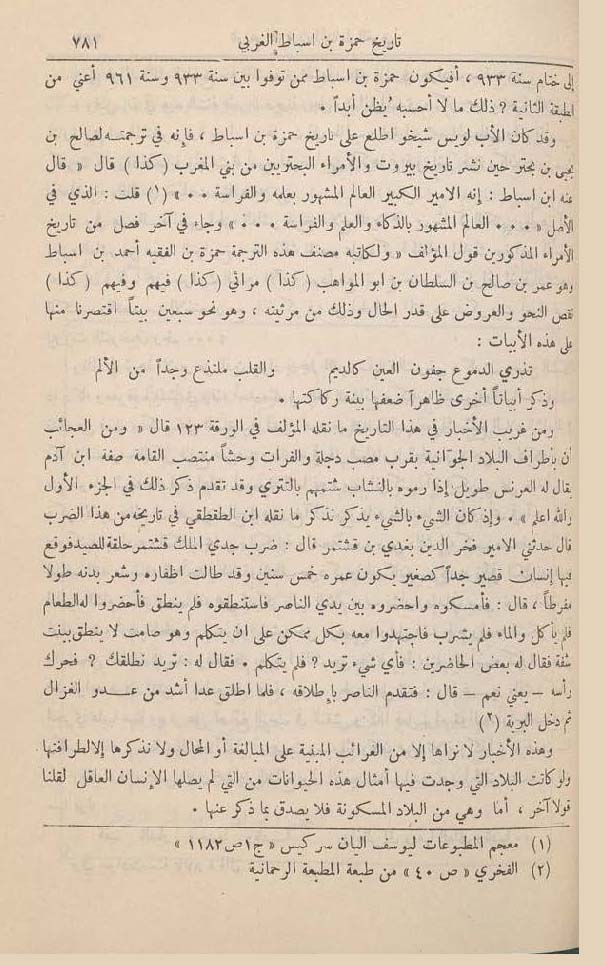 تاريخ حمزة بن اسباط الغربي ٧٨١
إلى ختام سنة ٩٣٣ ، أفيكون حمزة بن اسباط ممن توفوا بين سنة ٩٣٣ وسنة ٩٦١ أعني من
الطبقة الثانية ? ذلك ما لا أحسبه يُظن أبداً .
وقد كان الأب لويس شيخو اطلع على تاريخ حمزة بن اسباط ، فإنه في ترجمته لصالح بن
يحيى بن بحتر حين نشر تاريخ بيروت والأمراء البحتريين من بني المغرب ( كذا ) قال « قال
عنه ابن اسباط : إنه الامير الكبير العالم المشهور بعلمه والفراسة ٠٠ » (١) قلت : الذي في
الأصل « ٠٠٠ العالم المشهور بالذكاء والعلم والفراسة ٠٠٠ » وجاء في آخر فصل من تاريخ
الأمراء المذكورين قول المؤلف « ولكاتبه مصنف هذه الترجمة حمزة بن الفقيه أحمد بن اسباط
وهو عمر بن صالح بن السلطان بن ابو المواهب ( كذا ) مراثي ( كذا ) فيهم وفيهم ( كذا )
نقص النحو والعروض على قدر الحال وذلك من مرثيته ، وهو نحو سبعين بيتاً اقتصرنا منها
على هذه الأبيات :
تذري الدموع جفون العين كالديم والقلب ملتذع وجداً من الألم
وذكر أبياتاً أخرى ظاهراً ضعفها بينة ركاكتها .
ومن غريب الأخبار في هذا التاريخ ما نقله المؤلف في الورقة ١٢٣ قال « ومن العجائب
أن بأطراف البلاد الجوانية بقرب مصب دجلة والفرات وحشاً منتصب القامة صفة ابن آدم
يقال له العرنس طويل إذا رموه بالنشاب شتمهم بالتتري وقد تقدم ذكر ذلك في الجزء الأول
والله اعلم » . وإذ كان الشيء بالشيء يذكر نذكر ما نقله ابن الطقطقي في تاريخه من هذا الضرب
قال حدثني الامير فخر الدين بغدي بن قشتمر قال : ضرب جدي الملك قشتمر حلقة للصيد فوقع
فيها إنسان قصير جداً كصغير يكون عمره خمس سنين وقد طالت اظفاره وشعر بدنه طولا
مفرطاً ، قال : فأمسكوه واحضروه بين يدي الناصر فاستنطقوه فلم ينطق فأحضروا له الطعام
فلم يأكل والماء فلم يشرب فاجتهدوا معه بكل ممكن على ان يتكلم وهو صامت لا ينطق ببنت
شفة فقال له بعض الحاضرين : فأي شيء تريد ? فلم يتكلم . فقال له : تريد نطلقك ? فحرك
رأسه — يعني نعم — قال : فتقدم الناصر بإطلاقه ، فلما اطلق عدا أشد من عدو الغزال
ثم دخل البرية (٢)
وهذه الأخبار لا نراها إلا من الغرائب المبنية على المبالغة أو المحال ولا نذكرها إلا لطرافتها
ولو كانت البلاد التي وجدت فيها أمثال هذه الحيوانات من التي لم يصلها الإنسان العاقل لقلنا
قولا آخر ، أما وهي من البلاد المسكونة فلا يصدق بما ذكر عنها .
(١) معجم المطبوعات ليوسف اليان سركيس « ج١ ص ١١٨٢ »
(٢) الفخري « ص ٤٠ » من طبعة المطبعة الرحمانية